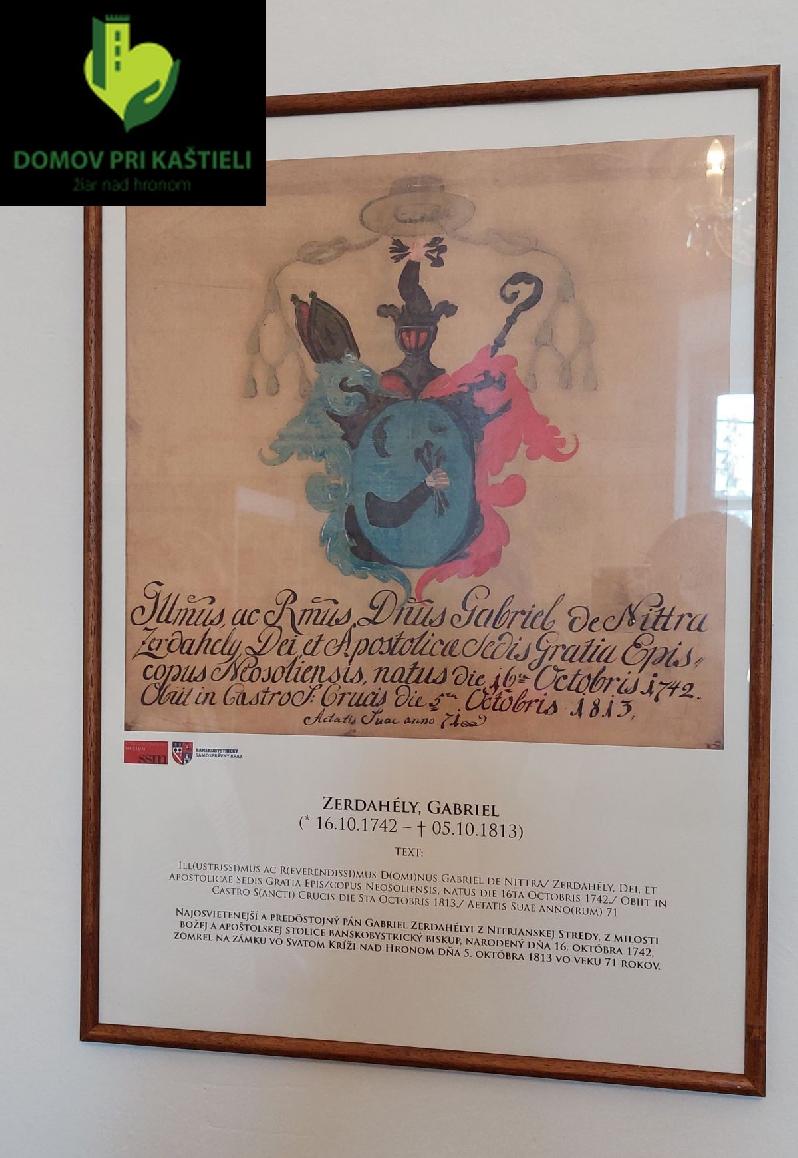 DOMOV PRI KAŠTIELI
žiar nad hronom
Illmus, ac Rmus, Dnus Gabriel de Nittra
Zerdahely, Dei, et Apostolicæ Sedis Gratia Epis„
copus Neosoliensis, natus die 16ta Octobris 1742.
Obiit in Castro S: Crucis die 5ta Octobris 1813,
Aetatis Suae anno 71
ssm
BANSKOBYSTRICKÝ
SAMOSPRÁVNY KRAJ
ZERDAHÉLY, GABRIEL
(* 16.10.1742 – † 05.10.1813)
TEXT:
ILL(USTRISSI)MUS AC R(EVERENDISSI)MUS D(OMI)NUS GABRIEL DE NITTRA/ ZERDAHÉLY, DEI, ET
APOSTOLICAE SEDIS GRATIA EPIS/COPUS NEOSOLIENSIS, NATUS DIE 16TA OCTOBRIS 1742./ OBIIT IN
CASTRO S(ANCTI) CRUCIS DIE 5TA OCTOBRIS 1813./ AETATIS SUAE ANNO(RUM) 71
NAJOSVIETENEJŠÍ A PREDÔSTOJNÝ PÁN GABRIEL ZERDAHÉLYI Z NITRIANSKEJ STREDY, Z MILOSTI
BOŽEJ A APOŠTOLSKEJ STOLICE BANSKOBYSTRICKÝ BISKUP, NARODENÝ DŇA 16. OKTÓBRA 1742,
ZOMREL NA ZÁMKU VO SVÄTOM KRÍŽI NAD HRONOM DŇA 5. OKTÓBRA 1813 VO VEKU 71 ROKOV.